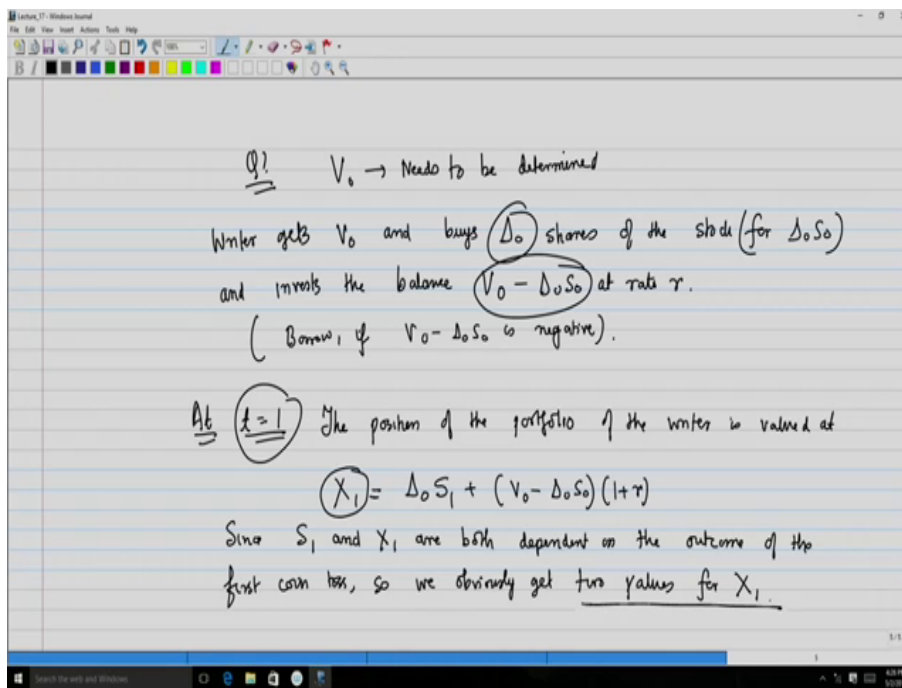 Lecture_17 - Windows Journal
File Edit View Insert Actions Tools Help
B I
Q?   V₀ → Needs to be determined
Writer gets V₀ and buys Δ₀ shares of the stock (for Δ₀S₀)
and invests the balance V₀ - Δ₀S₀ at rate r.
( Borrow, if V₀ - Δ₀S₀ is negative).
At t=1 The position of the portfolio of the writer is valued at
X₁ = Δ₀S₁ + (V₀ - Δ₀S₀)(1+r)
Since S₁ and X₁ are both dependent on the outcome of the
first coin toss, so we obviously get two values for X₁.
5/5
5
Search the web and Windows